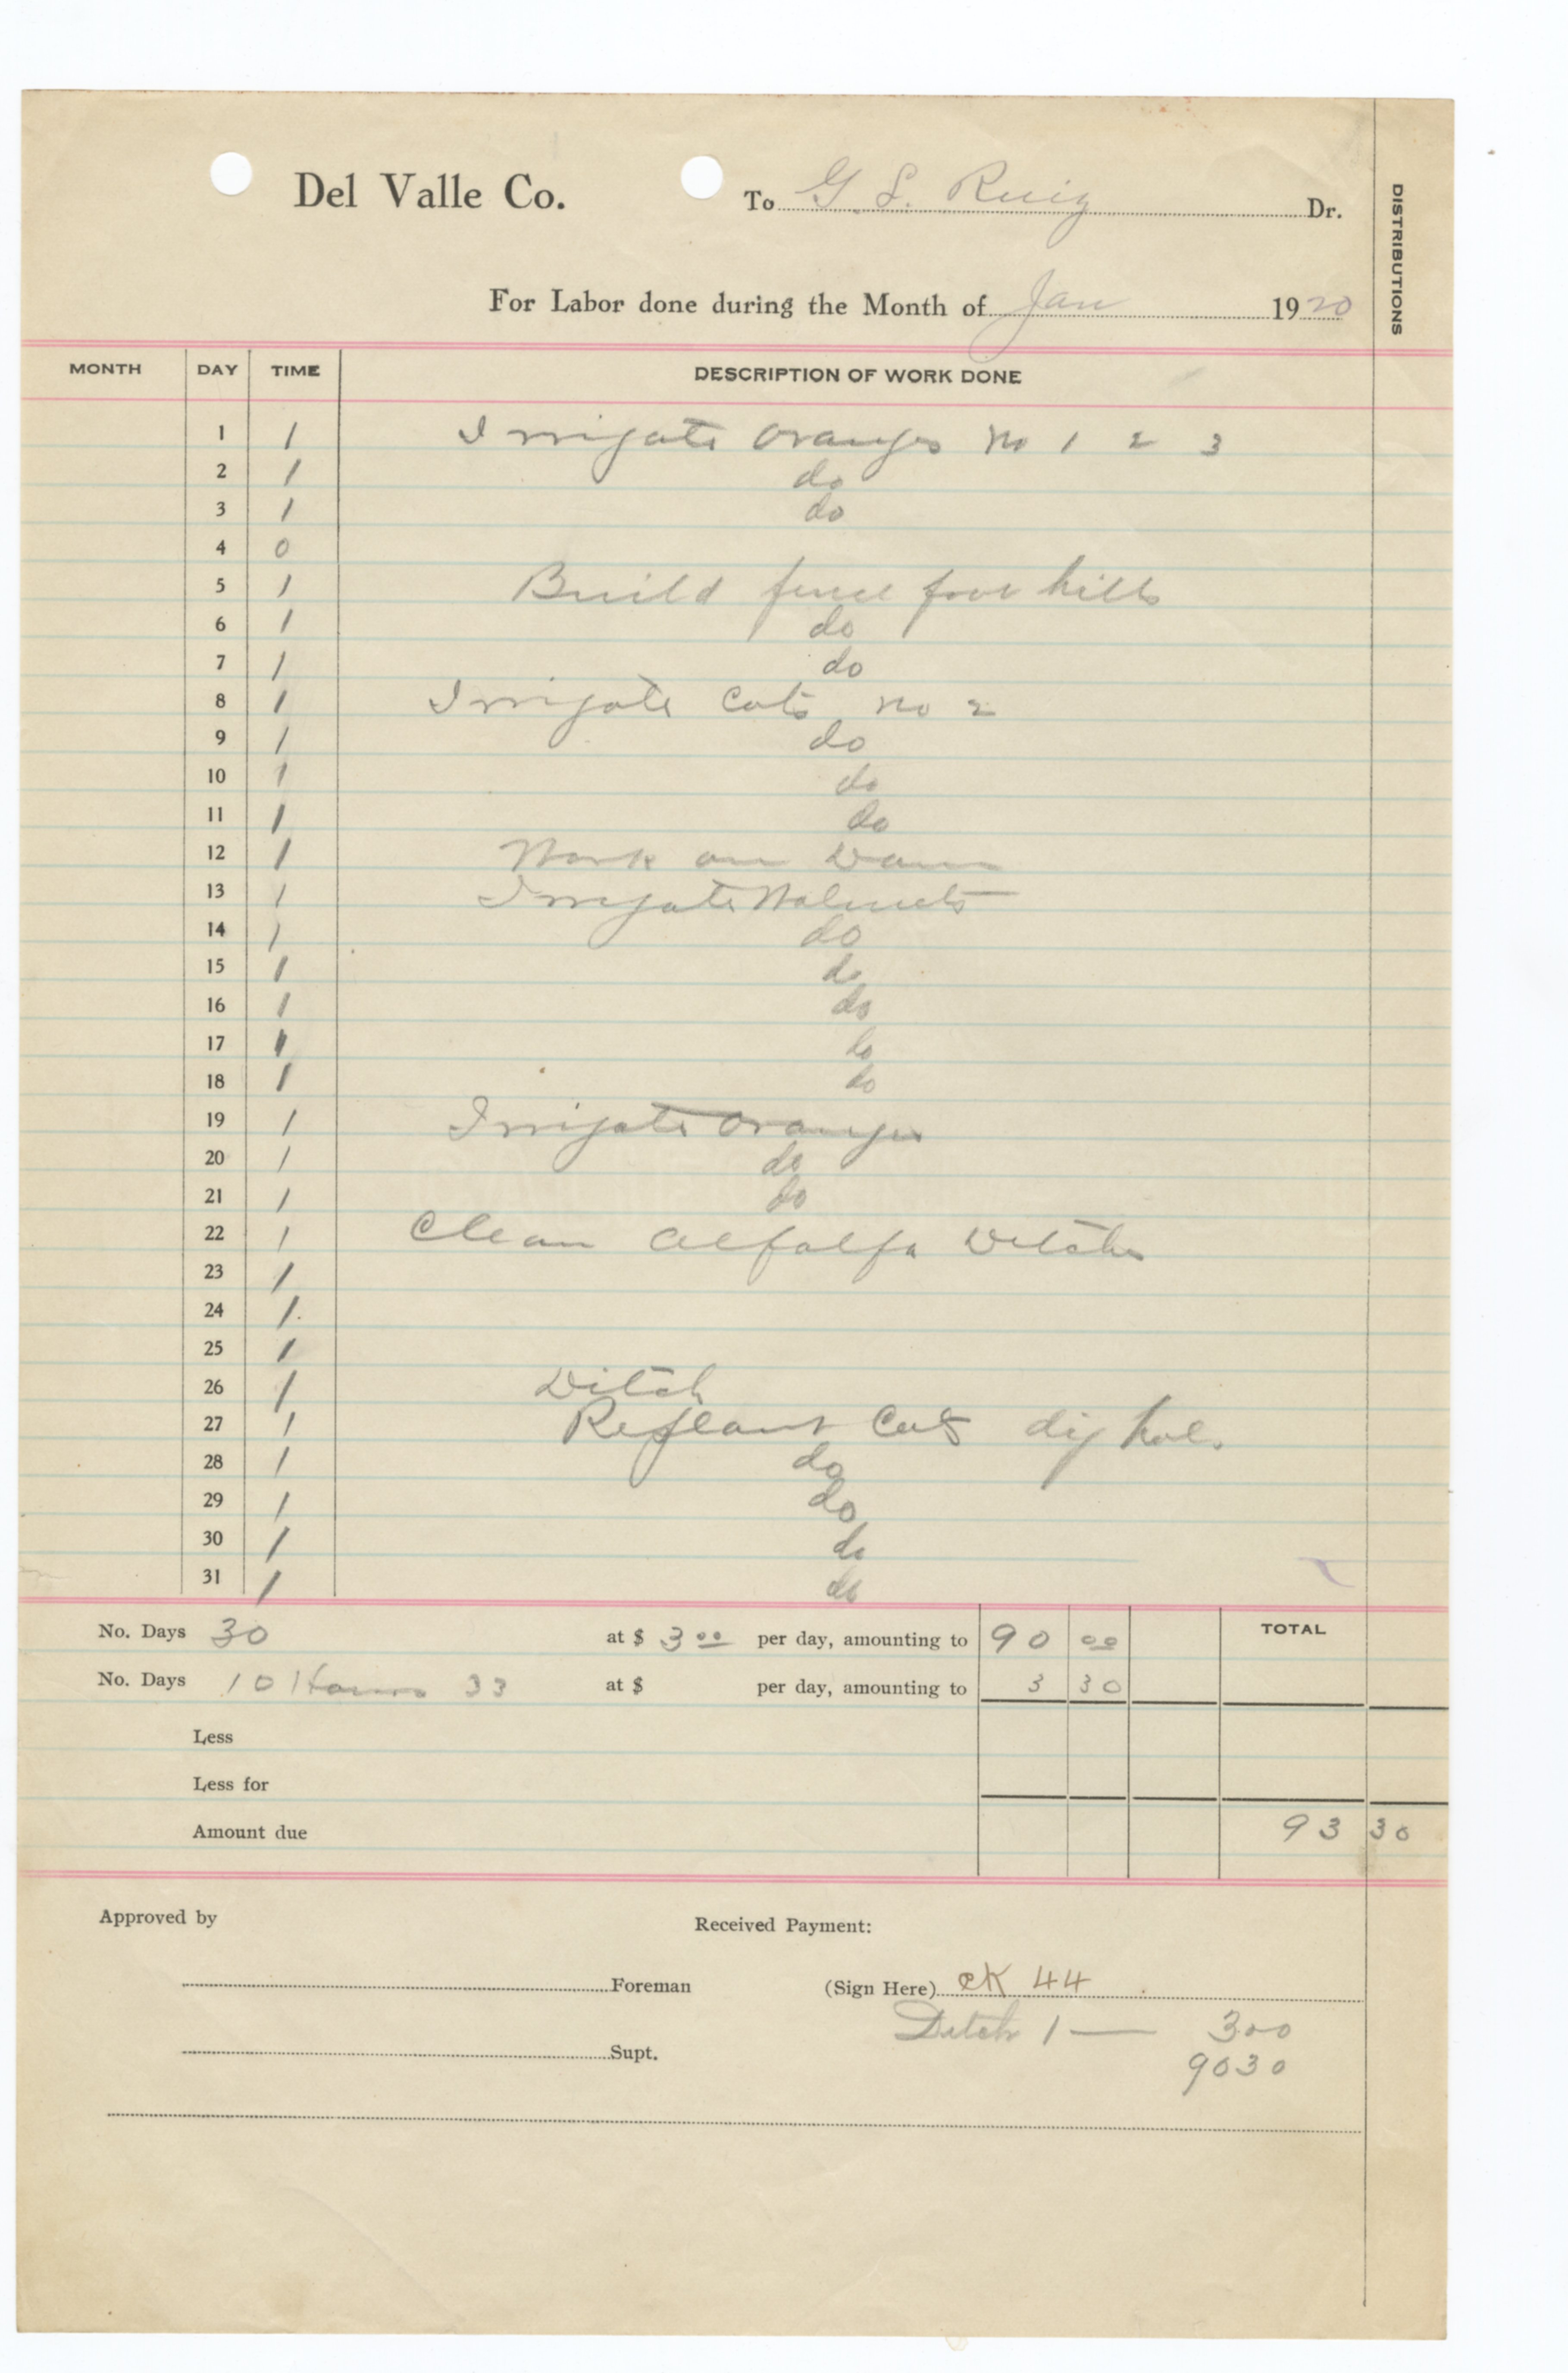 Del Valle Co. To G. L. Ruiz Dr.
DISTRIBUTIONS
For Labor done during the Month of Jan 1920
MONTH DAY TIME DESCRIPTION OF WORK DONE
1 1 Irrigate Oranges No 1 2 3
2 1 do
3 1 do
4 0
5 1 Build fence foot hills
6 1 do
7 1 do
8 1 Irrigate Cots No 2
9 1 do
10 1 do
11 1 do
12 1 Work on Dam
13 1 Irrigate Walnuts
14 1 do
15 1 do
16 1 do
17 1 do
18 1 do
19 1 Irrigate Oranges
20 1 do
21 1 do
22 1 Clean Alfalfa Ditches
23 1
24 1
25 1
26 1 Ditch
27 1 Replant Cots dig hol.
28 1 do
29 1 do
30 1 do
31 1 do
No. Days 30 at $ 3 00 per day, amounting to 90 00 TOTAL
No. Days 10 Hours 33 at $ per day, amounting to 3 30
Less
Less for
Amount due 93 30
Approved by Received Payment:
Foreman (Sign Here) CK 44
Ditch 1 — 300
Supt. 9030